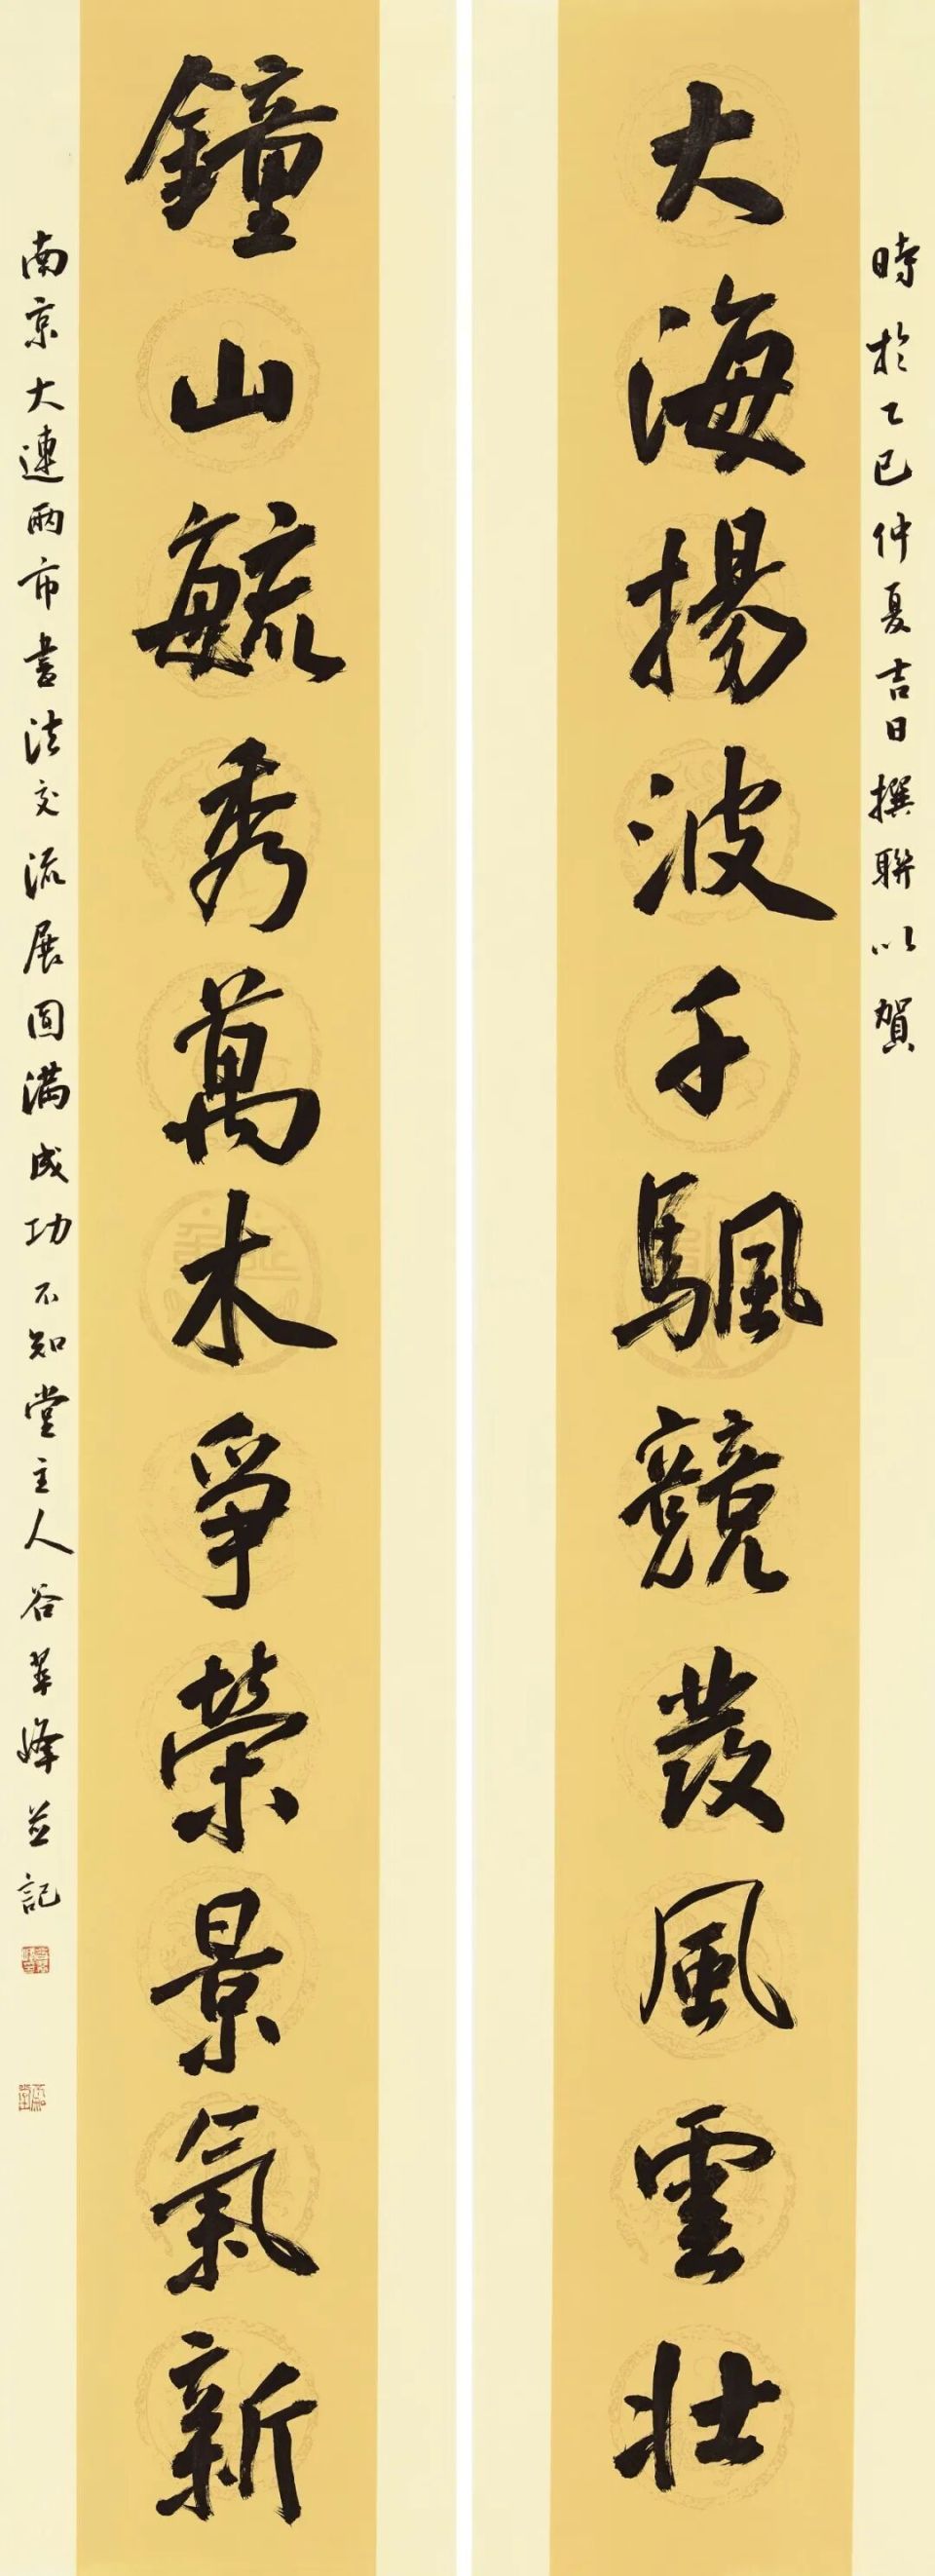 時於乙巳仲夏吉日撰聯以賀
大海揚波千颿競發風雲壯
鐘山毓秀萬木爭榮景氣新
南京大連兩市書法交流展圓滿成功不知堂主人谷翠峰並記